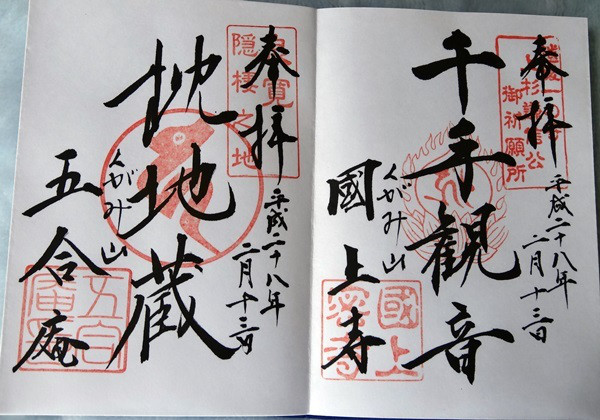 奉拝
平成二十八年
二月十三日
千手観音
くがみ山
國上寺
上杉謙信公
御祈願所
國上
奉拝
平成二十八年
二月十三日
枕地蔵
くがみ山
五合庵
良寛
隠棲之地
五合